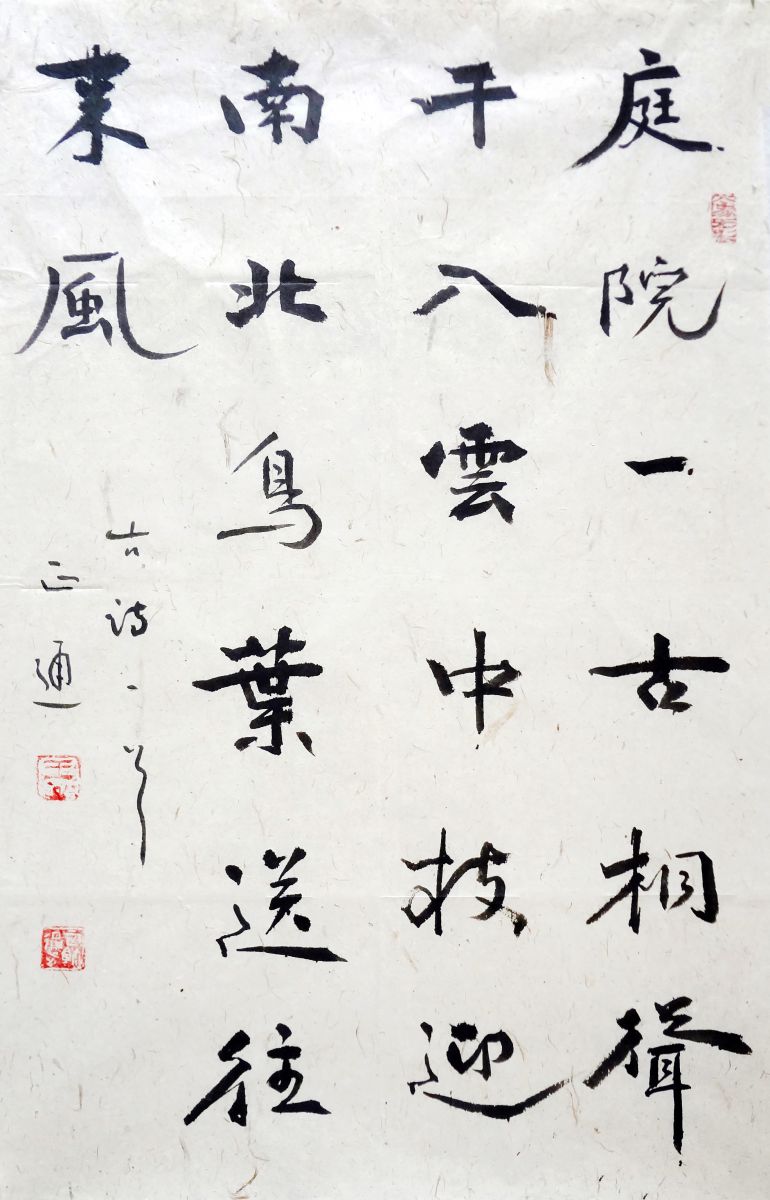 庭院一古桐聳
干入雲中枝迎
南北鳥葉送往
来風
古诗一首
正通